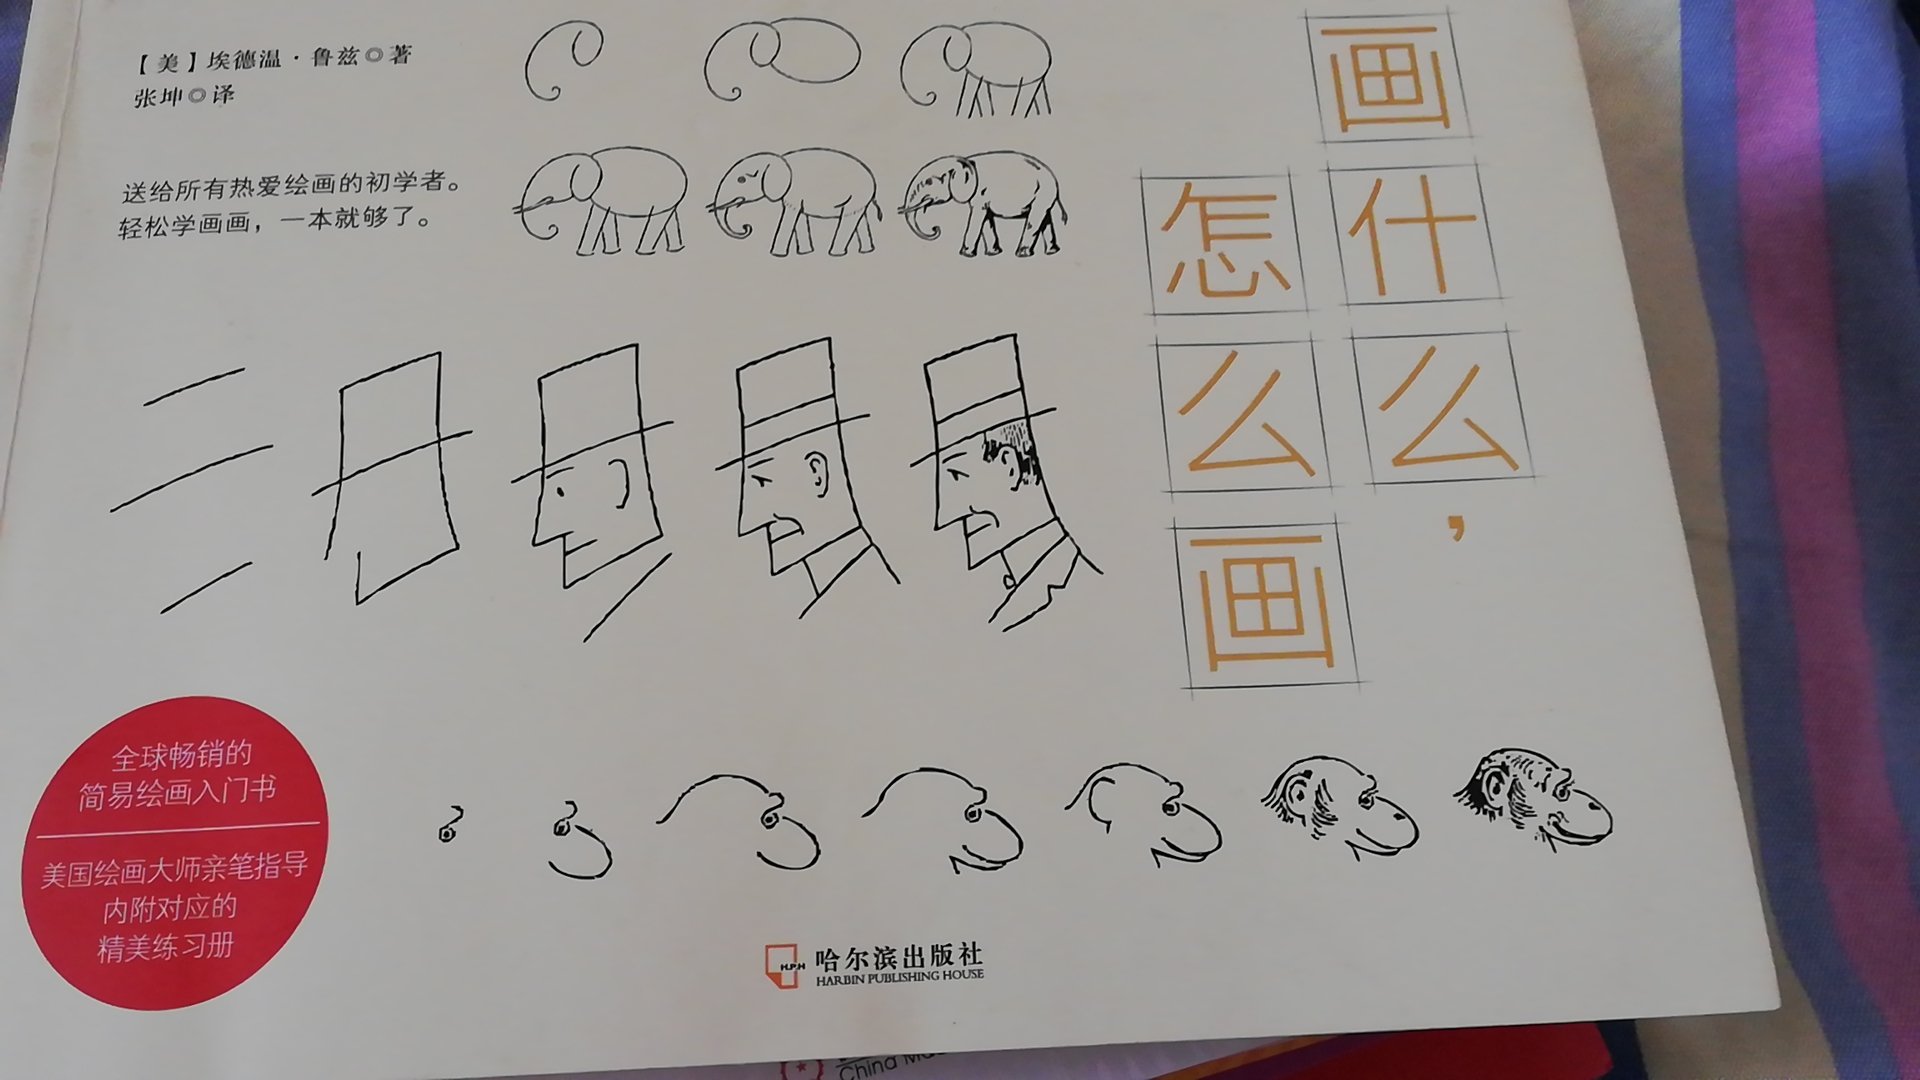 【美】埃德温·鲁兹◎著
张坤◎译
送给所有热爱绘画的初学者。
轻松学画画，一本就够了。
画什么，
怎么画
全球畅销的
简易绘画入门书
美国绘画大师亲笔指导
内附对应的
精美练习册
H.P.H
哈尔滨出版社
HARBIN PUBLISHING HOUSE
China